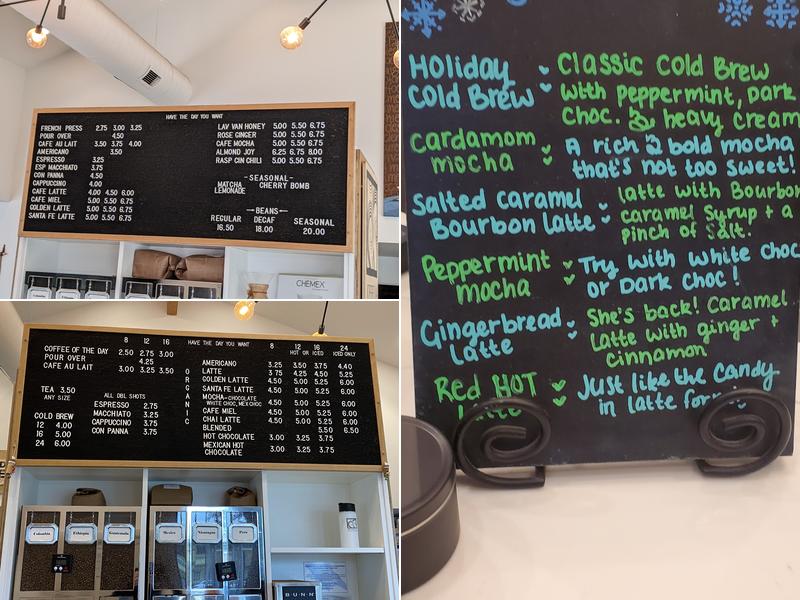 HAVE THE DAY YOU WANT
FRENCH PRESS 2.75 3.00 3.25
POUR OVER 4.50
CAFE AU LAIT 3.50 3.75 4.00
AMERICANO 3.50
ESPRESSO 3.25
ESP MACCHIATO 3.75
CON PANNA 4.50
CAPPUCCINO 4.00
CAFE LATTE 4.00 4.50 6.00
CAFE MIEL 5.00 5.50 6.75
GOLDEN LATTE 5.00 5.50 6.75
SANTA FE LATTE 5.00 5.50 6.75
LAV VAN HONEY 5.00 5.50 6.75
ROSE GINGER 5.00 5.50 6.75
CAFE MOCHA 5.00 5.50 6.75
ALMOND JOY 6.25 6.75 8.00
RASP CIN CHILI 5.00 5.50 6.75
-SEASONAL-
MATCHA LEMONADE
CHERRY BOMB
-BEANS-
REGULAR DECAF SEASONAL
16.50 18.00 20.00
CHEMEX
8 12 16
COFFEE OF THE DAY 2.50 2.75 3.00
POUR OVER 4.25
CAFE AU LAIT 3.00 3.25 3.75
TEA 3.50
ANY SIZE
ALL DBL SHOTS
ESPRESSO 2.75
MACCHIATO 3.25
CAPPUCCINO 3.75
CON PANNA 3.75
COLD BREW
12 4.00
16 5.00
24 6.00
ORGANIC
HAVE THE DAY YOU WANT
8 12 16 24
HOT OR ICED ICED ONLY
AMERICANO 3.25 3.50 3.75 4.40
LATTE 3.75 4.25 4.50 5.25
GOLDEN LATTE 4.50 5.00 5.25 6.00
SANTA FE LATTE 4.50 5.00 5.25 6.00
MOCHA-CHOCOLATE
WHITE CHOC, MEX CHOC 4.50 5.00 5.25 6.00
CAFE MIEL 4.50 5.00 5.25 6.00
CHAI LATTE 4.50 5.00 5.25 6.00
BLENDED 5.50 6.50
HOT CHOCOLATE 3.00 3.25 3.75
MEXICAN HOT
CHOCOLATE 3.00 3.25 3.75
Colombia
Ethiopia
Guatemala
Mexico
Nicaragua
Peru
BUNN
Holiday Cold Brew
Classic Cold Brew
with peppermint, Dark
Choc. & heavy cream
Cardamom mocha
A rich & bold mocha
that's not too sweet!
Salted Caramel
Bourbon Latte
latte with Bourbon
caramel syrup + a
pinch of salt.
Peppermint mocha
Try with white choc
or Dark choc!
Gingerbread Latte
She's back! Caramel
Latte with ginger +
cinnamon
Red HOT
Latte
Just like the candy
in latte form